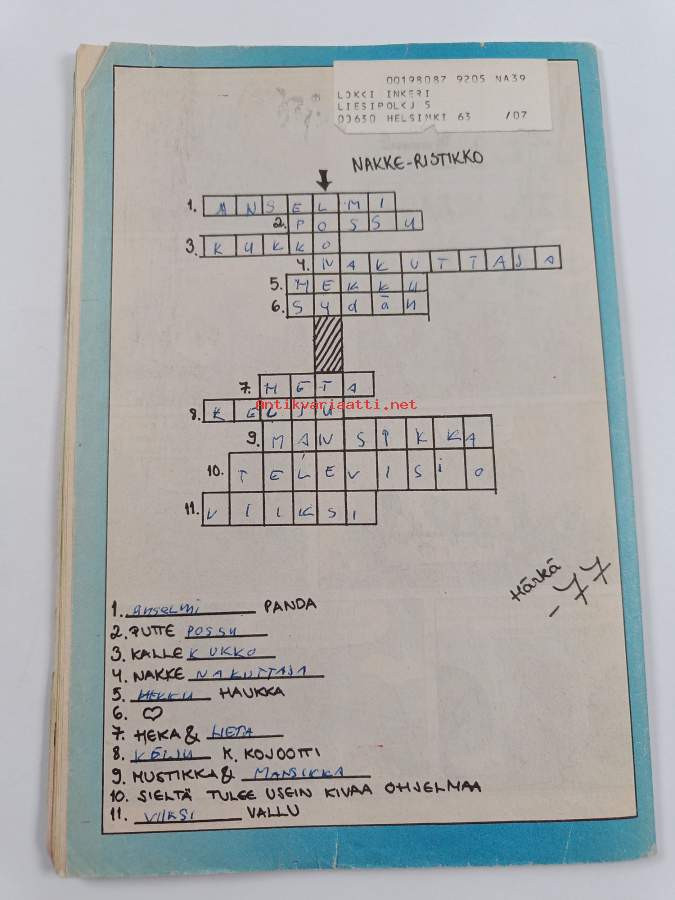 00198087 9205 NA39
LOKKI INKERI
LIESIPOLKU 5
00630 HELSINKI 63 /07
NAKKE-RISTIKKO
1. ANSELMI
2. POSSU
3. KUKKO
4. NAKUTTAJA
5. HEKKU
6. Sydän
7. HETA
Antikvariaatti.net
8. KELJU
9. MANSIKKA
10. TELEVISIO
11. VILKSI
Härkä
-77
1. Anselmi PANDA
2. PUTTE POSSU
3. KALLE KUKKO
4. NAKKE NAKUTTAJA
5. HEKKU HAUKKA
6. ♡
7. HEKA & HETA
8. KELJU K. KOJOOTTI
9. MUSTIKKA & MANSIKKA
10. SIELTÄ TULEE USEIN KIVAA OHJELMAA
11. VIlKSI VALLU